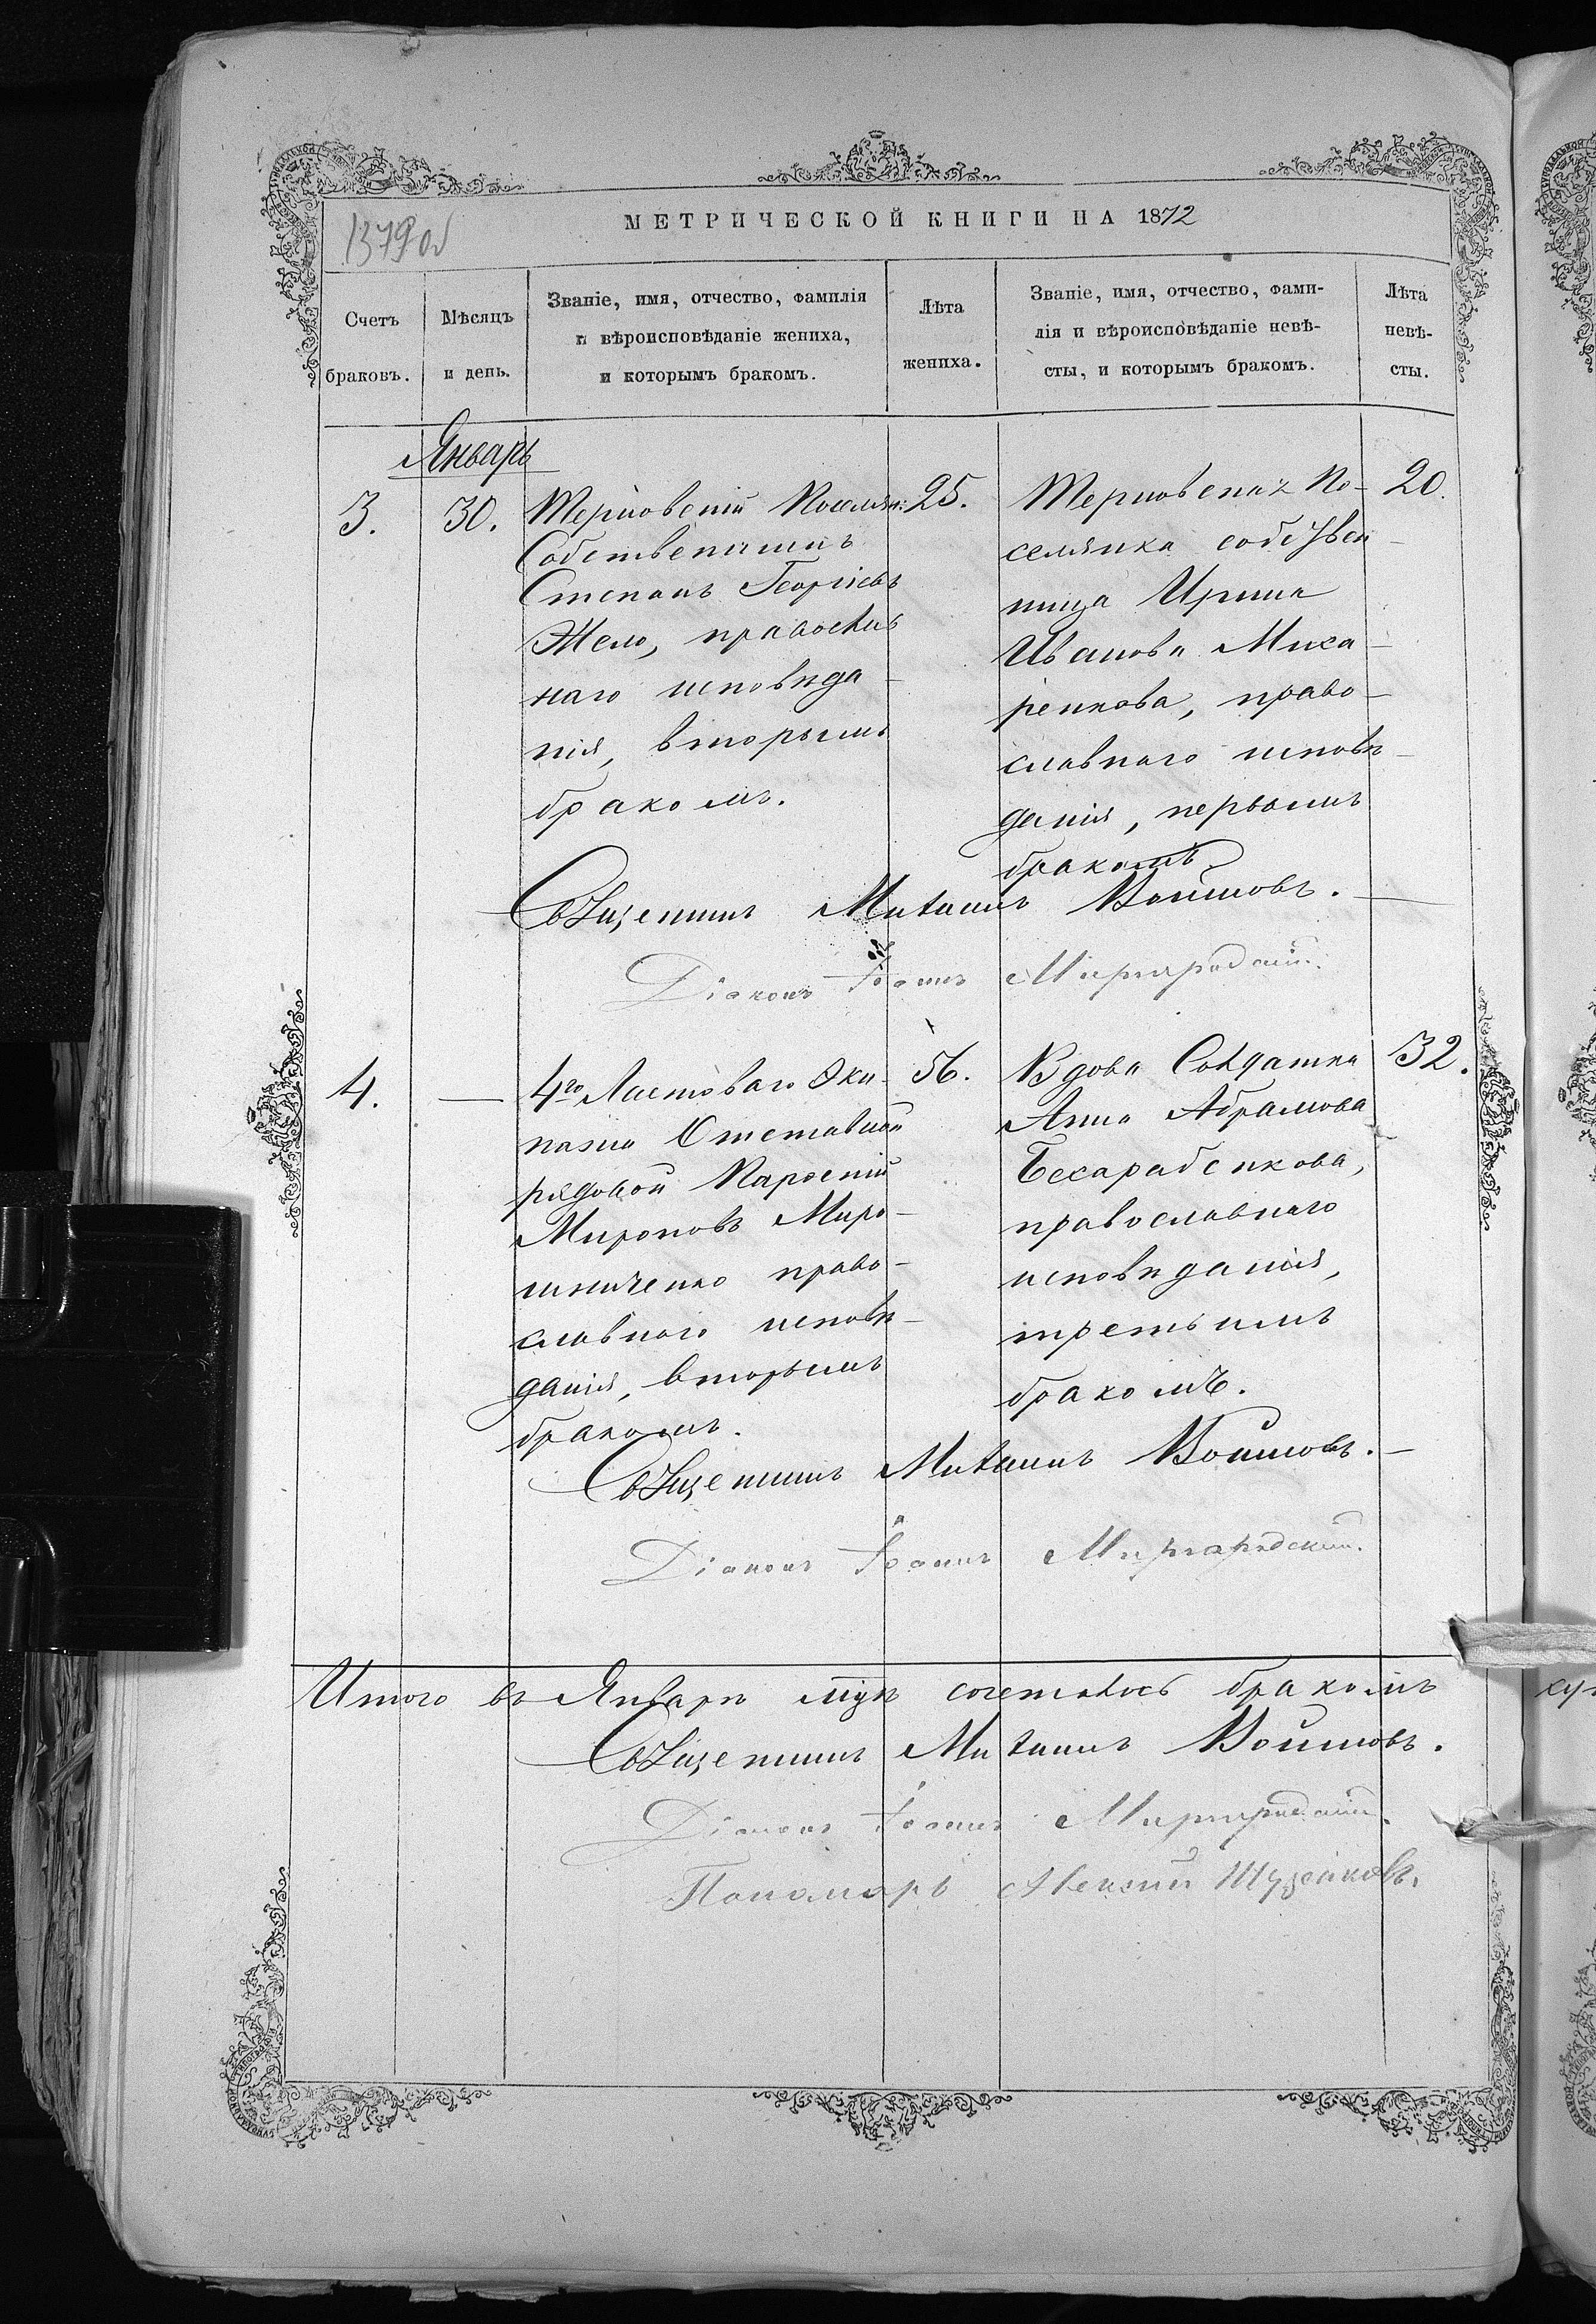 1379 об
МЕТРИЧЕСКОЙ КНИГИ НА 1872
Счетъ
браковъ.
Мѣсяцъ
и день.
Званіе, имя, отчество, фамилія
и вѣроисповѣданіе жениха,
и которымъ бракомъ.
Лѣта
жениха.
Званіе, имя, отчество, фами-
лія и вѣроисповѣданіе невѣ-
сты, и которымъ бракомъ.
Лѣта
невѣ-
сты.
Январь
3.
30.
Терновскій Поселян:
Собственникъ
Степанъ Георгіевъ
Жело, православ
наго исповѣда-
нія, вторымъ
бракомъ.
25.
Терновская По-
селянка собствен-
ница Ирина
Иванова Мака-
ренкова, право-
славнаго исповѣ-
данія, первымъ
бракомъ
20.
Священникъ Михаилъ Воиновъ.
Діаконъ Іоаннъ Миргородскій.
4.
—
4го Ластоваго Эки-
пажа Отставной
рядовой
Мироновъ Миро-
шниченко право-
славнаго исповѣ-
данія, вторымъ
бракомъ.
56.
Вдова Солдатка
Анна Абрамова
Бесарабенкова,
православнаго
исповѣданія,
третьимъ
бракомъ.
32.
Священникъ Михаилъ Воиновъ.
Діаконъ Іоаннъ Миргородскій.
Итого въ Январѣ м-цѣ сочеталось бракомъ
Священникъ Михаилъ Воиновъ.
Діаконъ Іоаннъ Миргородскій.
Пономарь Алексій